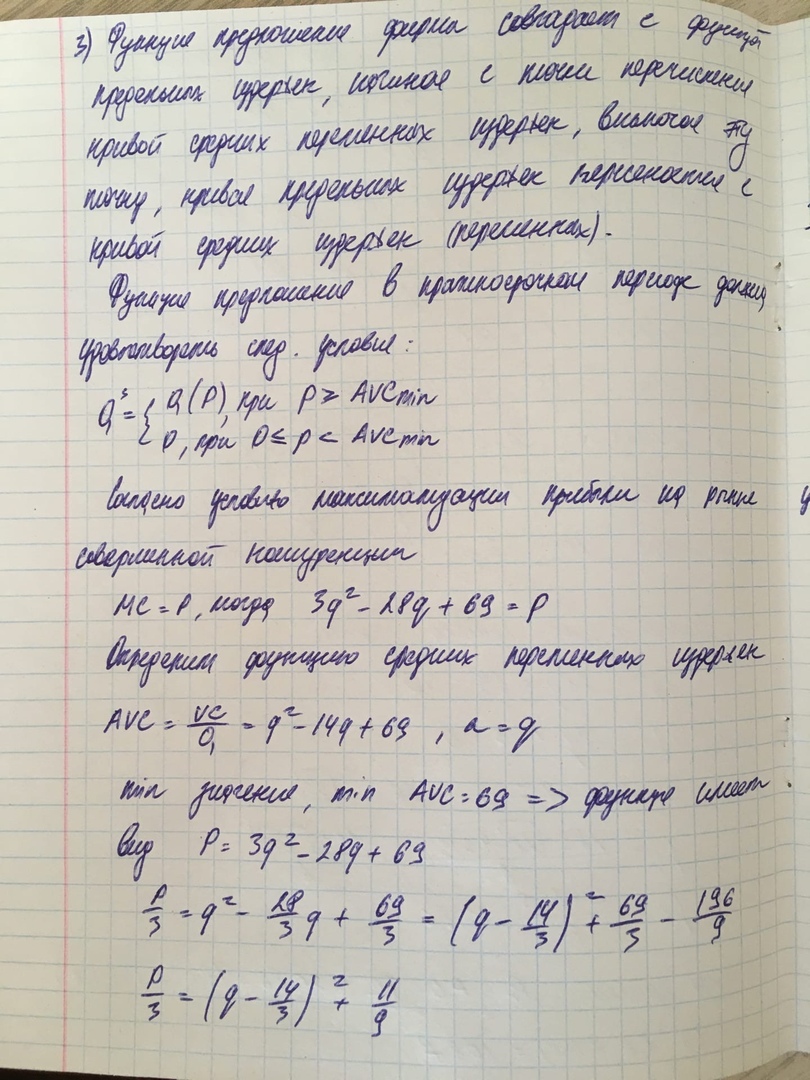 3) Функция предложения фирмы совпадает с функцией
предельных издержек, начиная с точки пересечения
кривой средних переменных издержек, включая эту
точку, кривая предельных издержек пересекается с
кривой средних издержек (переменных).
Функция предложения в краткосрочном периоде должна
удовлетворять след. условия:
Q^s = { Q(P), при P ≥ AVCmin
0, при 0 ≤ p < AVCmin
Согласно условию максимизации прибыли на рынке
совершенной конкуренции
MC = P, когда 3q² - 28q + 69 = P
Определим функцию средних переменных издержек
AVC = VC/Q = q² - 14q + 69 , a = q
min значение, min AVC = 69 => функция имеет
вид P = 3q² - 28q + 69
P/3 = q² - 28/3 q + 69/3 = (q - 14/3)² + 69/3 - 196/9
P/3 = (q - 14/3)² + 11/9